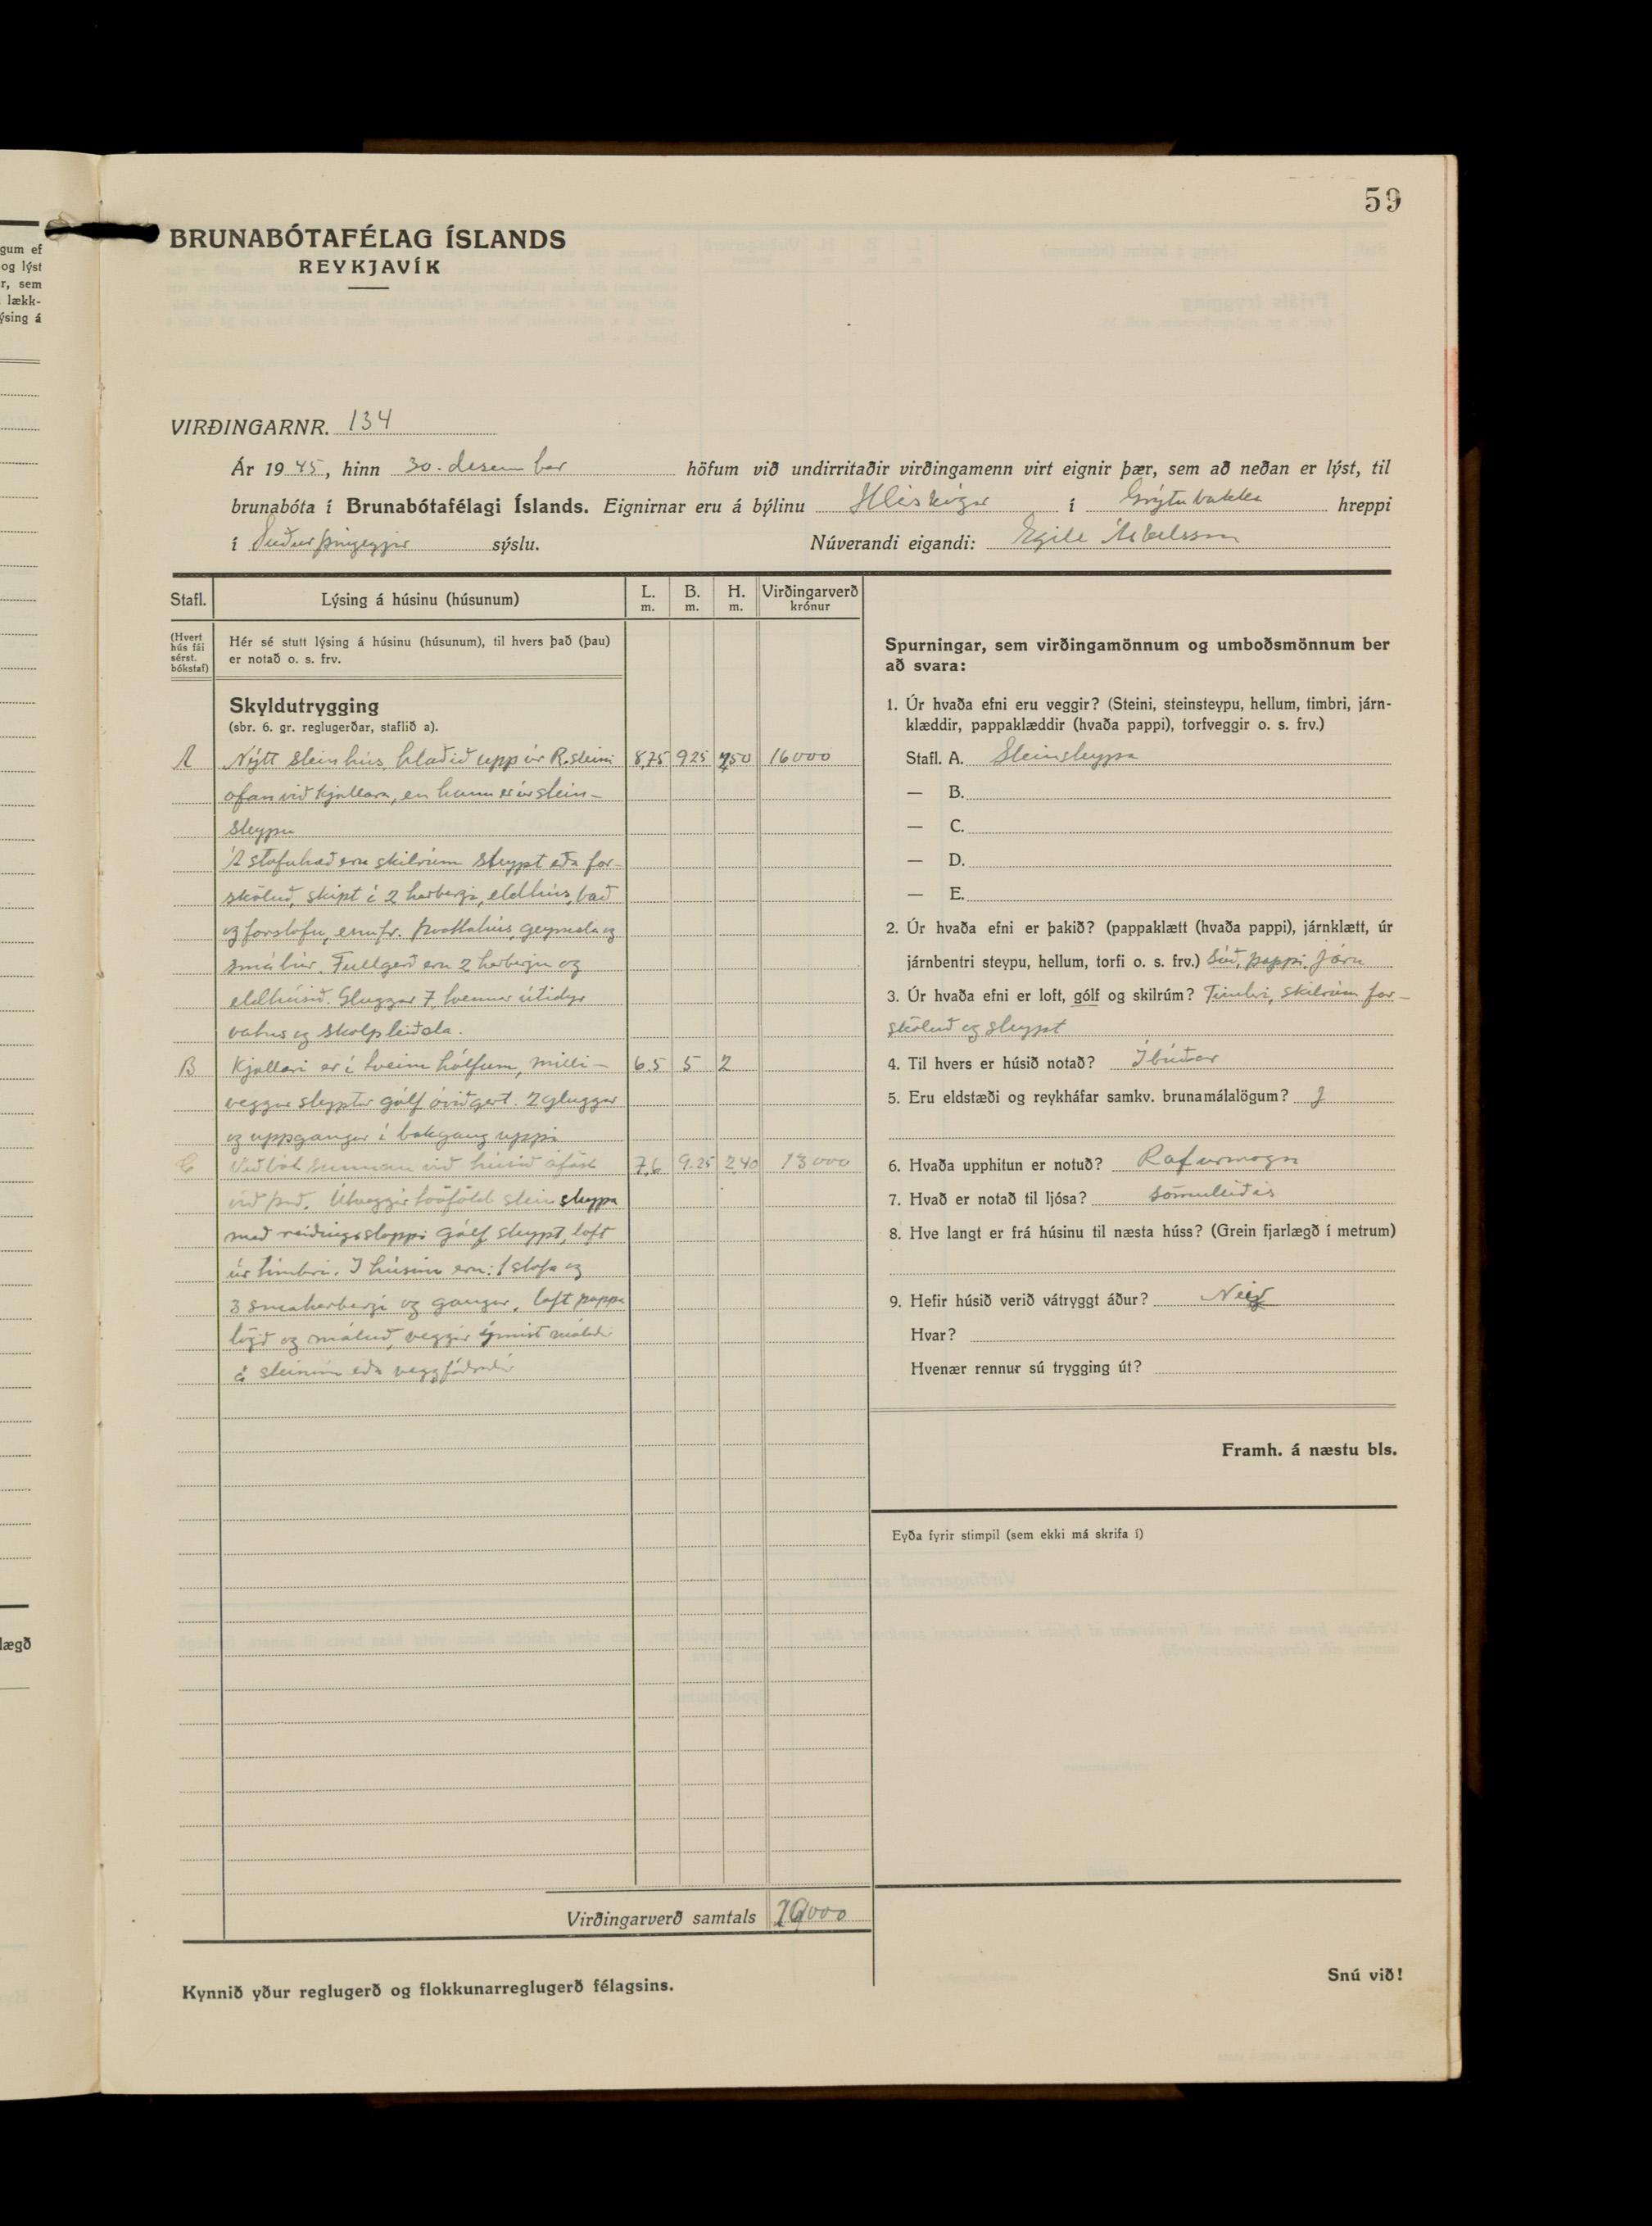 59
BRUNABÓTAFÉLAG ÍSLANDS
REYKJAVÍK
VIRÐINGARNR. 134
Ár 1945, hinn 30. desember höfum við undirritaðir virðingamenn virt eignir þær, sem að neðan er lýst, til
brunabóta í Brunabótafélagi Íslands. Eignirnar eru á býlinu Hléskógar í Grýtubakka hreppi
í Suður þingeyjar sýslu. Núverandi eigandi: Egill Áskelsson
Stafl. Lýsing á húsinu (húsunum) L. m. B. m. H. m. Virðingarverð krónur
(Hvert hús fái sérst. bókstaf)
Hér sé stutt lýsing á húsinu (húsunum), til hvers það (þau)
er notað o. s. frv.
Skyldutrygging
(sbr. 6. gr. reglugerðar, staflið a).
A Nýtt steinhús, hlaðið upp úr R.steini 8,75 925 16000
ofan við kjallara, en hann er úr stein-
steypu
Á stofuhæð eru skilrúm steypt eða for-
sköluð, skipt í 2 herbergi, eldhús, bað
og forstofu, ennfr. þvottahús, geymsla og
smábúr. Fullgerð eru 2 herbergin og
eldhúsið. Gluggar 7, tvennar útidyr
vatns og skolpleiðsla.
B Kjallari er í tveim hólfum, milli- 6.5 5 2
veggur steyptur gólf óviðgert. 2 gluggar
og uppgangur í bakgang uppi
C Viðbót sunnan við húsið áföst 7,6 9.25 2.40 13000
við það. Útveggir tvöföld steinsteypa
með reiðingsstoppi gólf steypt, loft
úr timbri. Í húsinu eru: 1 stofa og
3 smáherbergi og gangur, loft pappa
lögð og máluð, veggir ýmist málaðir
á steininn eða veggfóðraðir
Virðingarverð samtals
Kynnið yður reglugerð og flokkunarreglugerð félagsins.
Spurningar, sem virðingamönnum og umboðsmönnum ber
að svara:
1. Úr hvaða efni eru veggir? (Steini, steinsteypu, hellum, timbri, járn-
klæddir, pappaklæddir (hvaða pappi), torfveggir o. s. frv.)
Stafl. A. Steinsteypa
— B.
— C.
— D.
— E.
2. Úr hvaða efni er þakið? (pappaklætt (hvaða pappi), járnklætt, úr
járnbentri steypu, hellum, torfi o. s. frv.) Súð, pappi, járn
3. Úr hvaða efni er loft, gólf og skilrúm? Timbri, skilrúm for-
sköluð og steypt
4. Til hvers er húsið notað? Íbúðar
5. Eru eldstæði og reykháfar samkv. brunamálalögum? J
6. Hvaða upphitun er notuð? Rafurmagn
7. Hvað er notað til ljósa? sömuleiðis
8. Hve langt er frá húsinu til næsta húss? (Grein fjarlægð í metrum)
9. Hefir húsið verið vátryggt áður? Nei
Hvar?
Hvenær rennur sú trygging út?
Framh. á næstu bls.
Eyða fyrir stimpil (sem ekki má skrifa í)
Snú við!
gum ef
og lýst
r, sem
lækk-
ýsing á
lægð